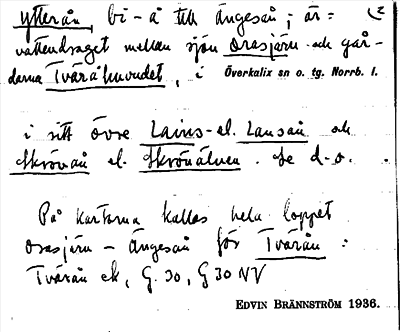 ytterån, bi-å till Ängesån; är = (2
vattendraget mellan sjön Orasjärv och går-
darna Tvåråhuvudet, i Överkalix sn o. tg. Norrb. l.
i sitt övre Lains- el. Lansån och
Skrövån el. Skrövälven. Se d.o.
På kartorna kallas hela loppet
Orasjärv - Ängesån för Tvärån:
Tvärån ek, G. 30, G 30 NV
EDVIN BRÄNNSTRÖM 1936.